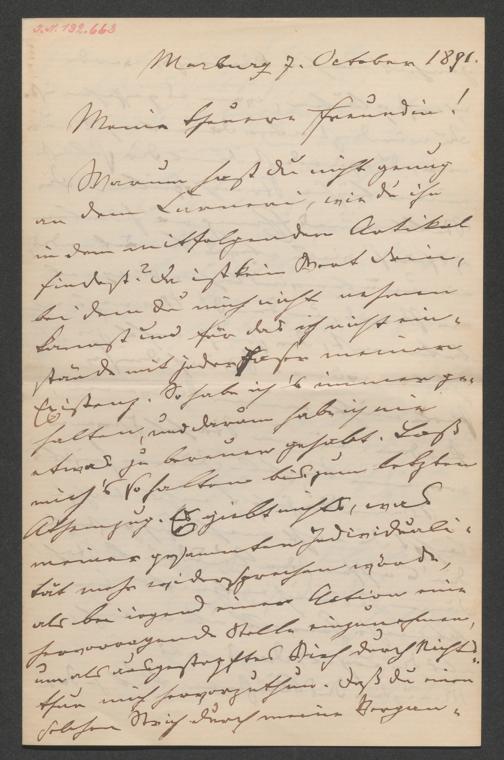 J.N. 132.663
Marburg 7. October 1891.
Meine theuere Freundin!
Warum hast du nicht genug
an dem Carneri, wie du ihn
in dem mitfolgenden Artikel
findest? Da ist kein Wort drin,
bei dem du mich nicht nehmen
kannst und für das ich nicht ein-
stände mit jeder Faser meiner
Existenz. So habe ich's immer ge-
halten, und darum habe ich nie
etwas zu bereuen gehabt. Laß
mich's so halten bis zum letzten
Athemzug. Es giebt nichts, was
meiner gesammten Individuali-
tät mehr widersprechen würde,
als bei irgend einer Action eine
hervorragende Stelle einzunehmen,
um als ausgestopftes durch Nichts-
thun mich hervorzuthun. Daß du einen
solchen durch meine Vergan-